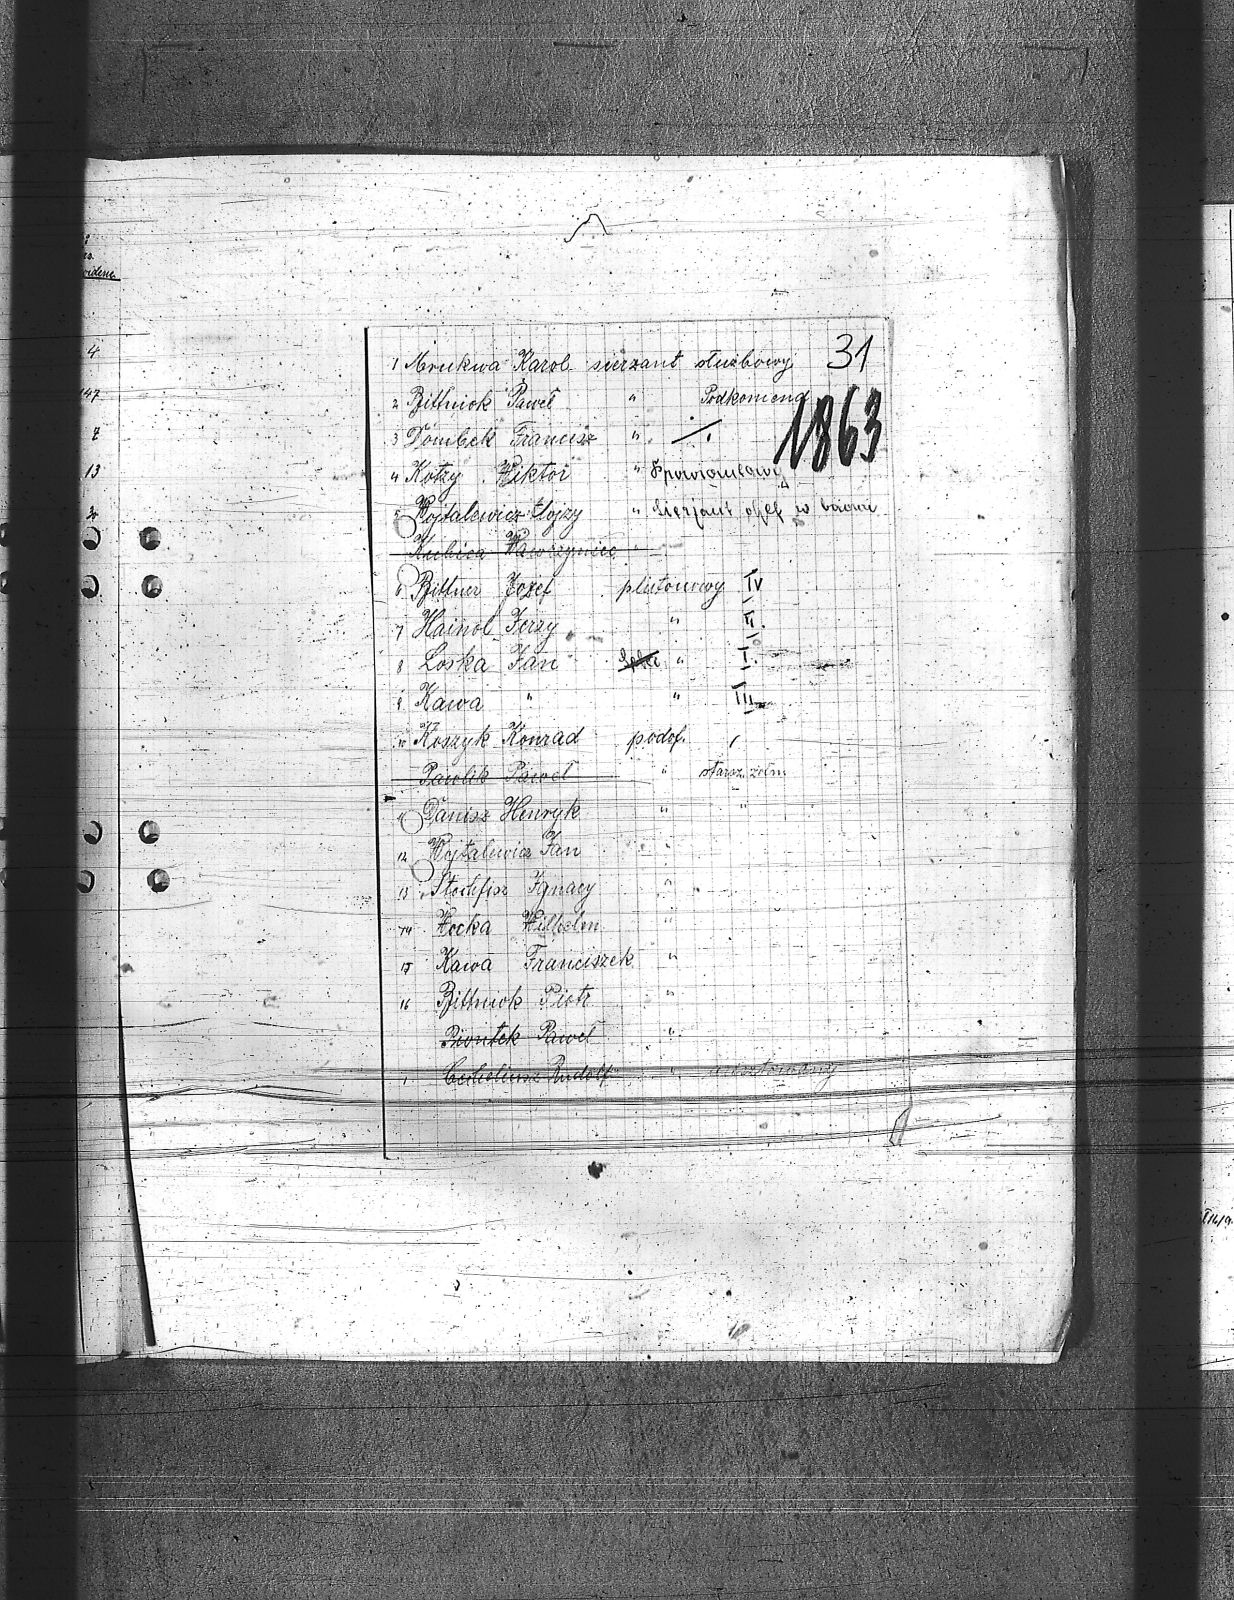 31
1 Mrukwa Karol sierzant służbowy
1863
2 Bittniok Paweł " Podkomend
3 Dombek Francisz " ./.
4 Kotzy Wiktor " Sprowiantowy
5 Wojtalewicz Alojzy " Sierjant szef w biuru
Kubica Wawrzyniec "
6 Bittner Jozef plutonowy IV
7 Hainol Jerzy " II.
8 Loska Jan " I.
9 Kawa " " III
10 Koszyk Konrad podof. "
Pawlik Paweł " starsz. żołn
11 Danisz Henryk " "
12 Wojtalewicz Jan "
13 Stockfisz Ignacy "
14 Hocka Wilhelm "
15 Kawa Franciszek "
16 Bittniok Piotr "
Piontek Paweł "
Rudolf "
4
147
7
13